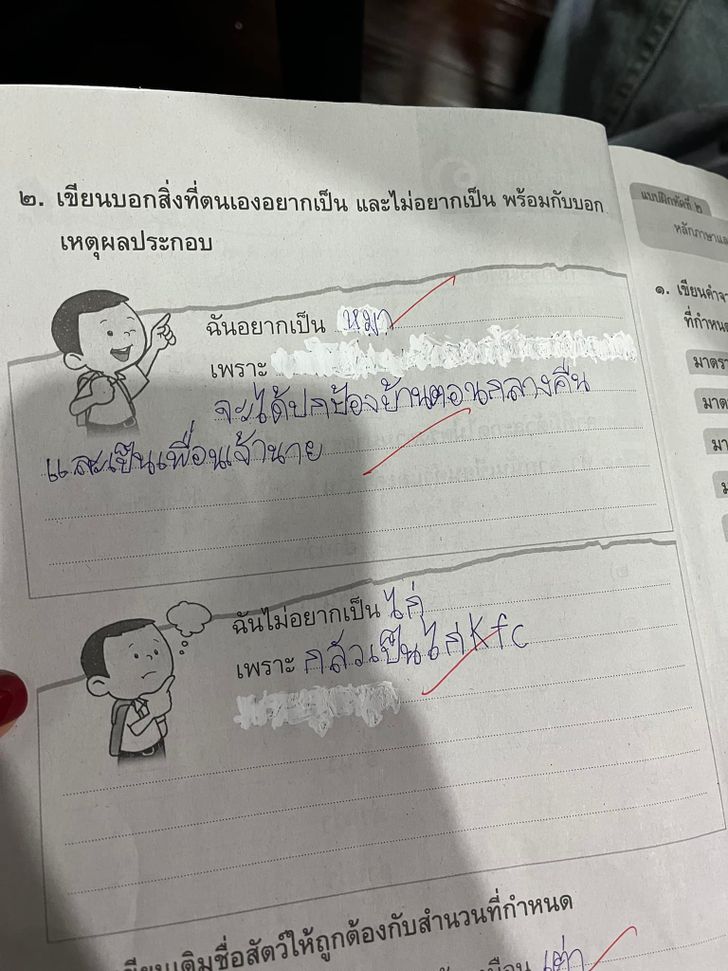 ๒. เขียนบอกสิ่งที่ตนเองอยากเป็น และไม่อยากเป็น พร้อมกับบอก
เหตุผลประกอบ
ฉันอยากเป็น หมา
เพราะ
จะได้ปกป้องบ้านตอนกลางคืน
และเป็นเพื่อนเจ้านาย
ฉันไม่อยากเป็น ไก่
เพราะ กลัวเป็นไก่ Kfc
เขียนเติมชื่อสัตว์ให้ถูกต้องกับสำนวนที่กำหนด
เต่า
แบบฝึกหัดที่ ๒
หลักภาษาแล
๑. เขียนคำจา
ที่กำหน
มาตรา
มาต
มา